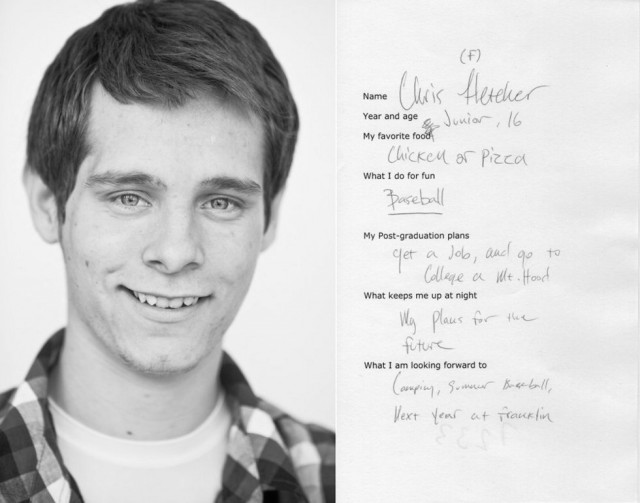 (F)
Name Chris Fletcher
Year and age Junior, 16
My favorite food
Chicken or Pizza
What I do for fun
Baseball
My Post-graduation plans
get a Job, and go to
College a Mt. Hood
What keeps me up at night
My plans for the
future
What I am looking forward to
Camping, Summer Baseball,
Next Year at Franklin